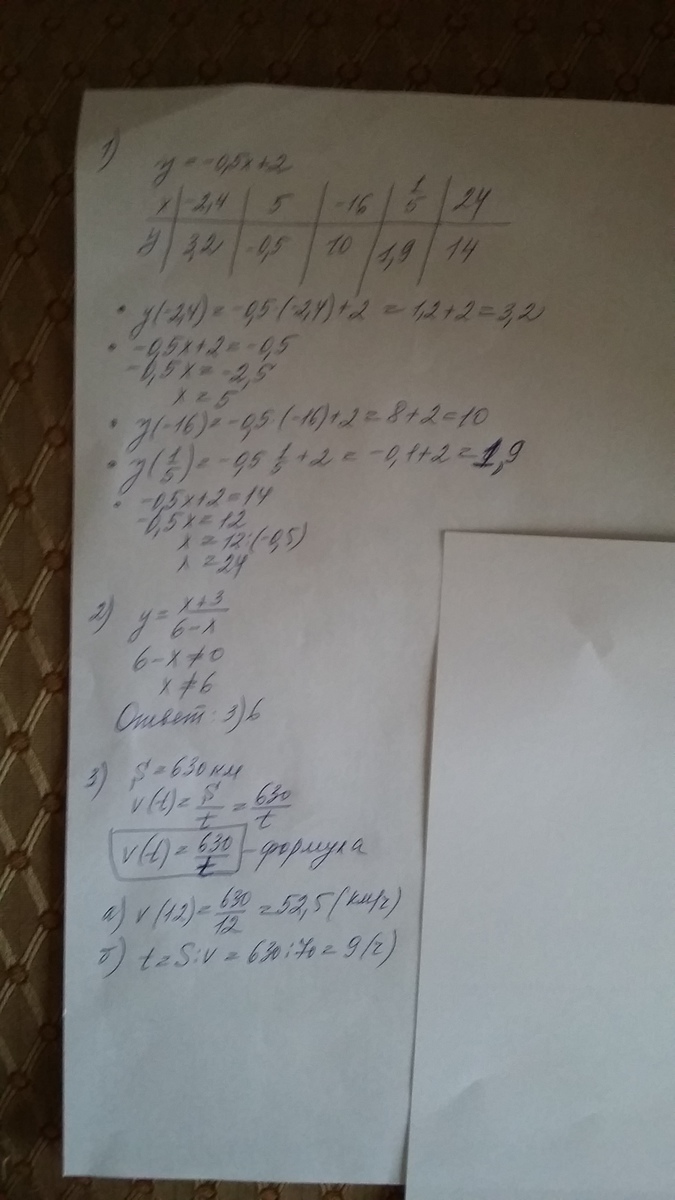 1)
y = -0,5x+2
x | -2,4 | 5 | -16 | 1/5 | 24
y | 3,2 | -0,5 | 10 | 1,9 | 14
• y(-2,4) = -0,5·(-2,4)+2 = 1,2+2=3,2
• -0,5x+2=-0,5
-0,5x=-2,5
x = 5
• y(-16)=-0,5·(-16)+2=8+2=10
• y(1/5)=-0,5·1/5+2 = -0,1+2=1,9
• -0,5x+2=14
-0,5x=12
x = 12:(-0,5)
x = 24
2) y = x+3/6-x
6-x≠0
x≠6
Ответ: 3)6
3) S=630км
v(t)=S/t=630/t
v(t)=630/t - формула
а) v(12)=630/12=52,5(км/ч)
б) t=S:v = 630:70=9(ч)